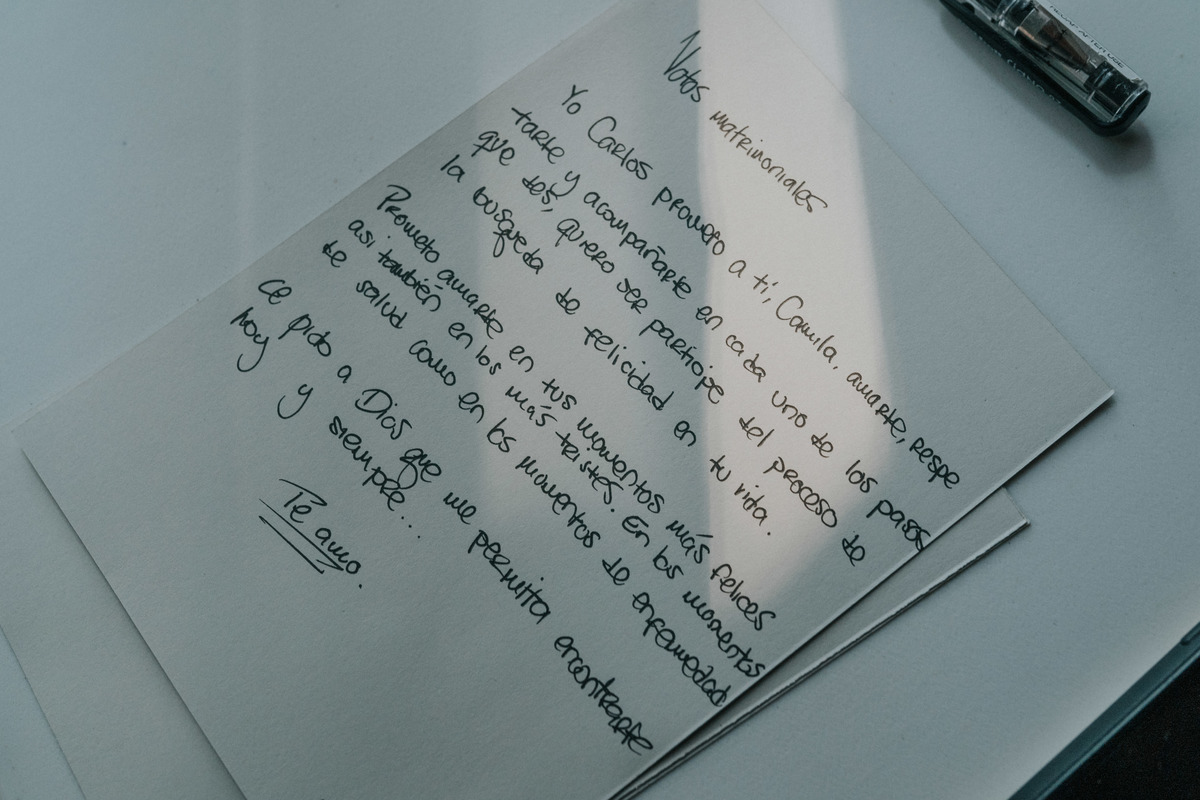 Votos matrimoniales
Yo Carlos prometo a tí, Camila, amarte, respe
tarte y acompañarte en cada uno de los pasos
que des, quiero ser partícipe del proceso de
la búsqueda de felicidad en tu vida.
Prometo amarte en tus momentos más felices
asi también en los más tristes. En los momentos
de salud como en los momentos de enfermedad
Le pido a Dios que me permita encontrarte
hoy y siempre...
Te amo.